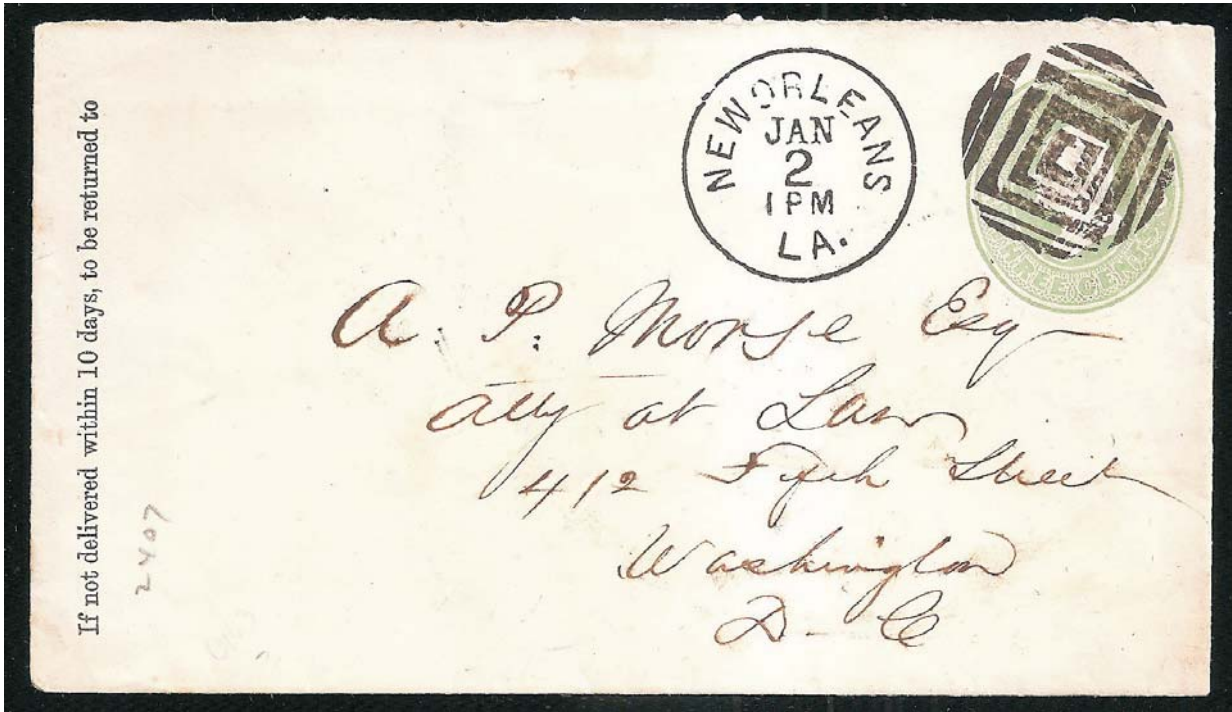 If not delivered within 10 days, to be returned to
2407
NEW ORLEANS
JAN
2
1 PM
LA.
THREE CENTS
A. P. Morse Esq
Atty at Law
412 Fifth Street
Washington
D- C